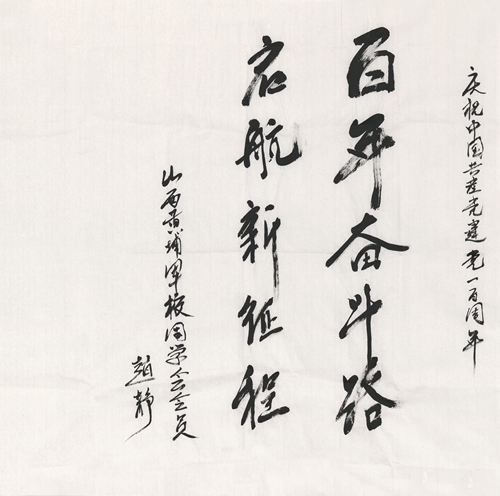 庆祝中国共产党建党一百周年
百年奋斗路
启航新征程
山西黄埔军校同学会会员
趙静